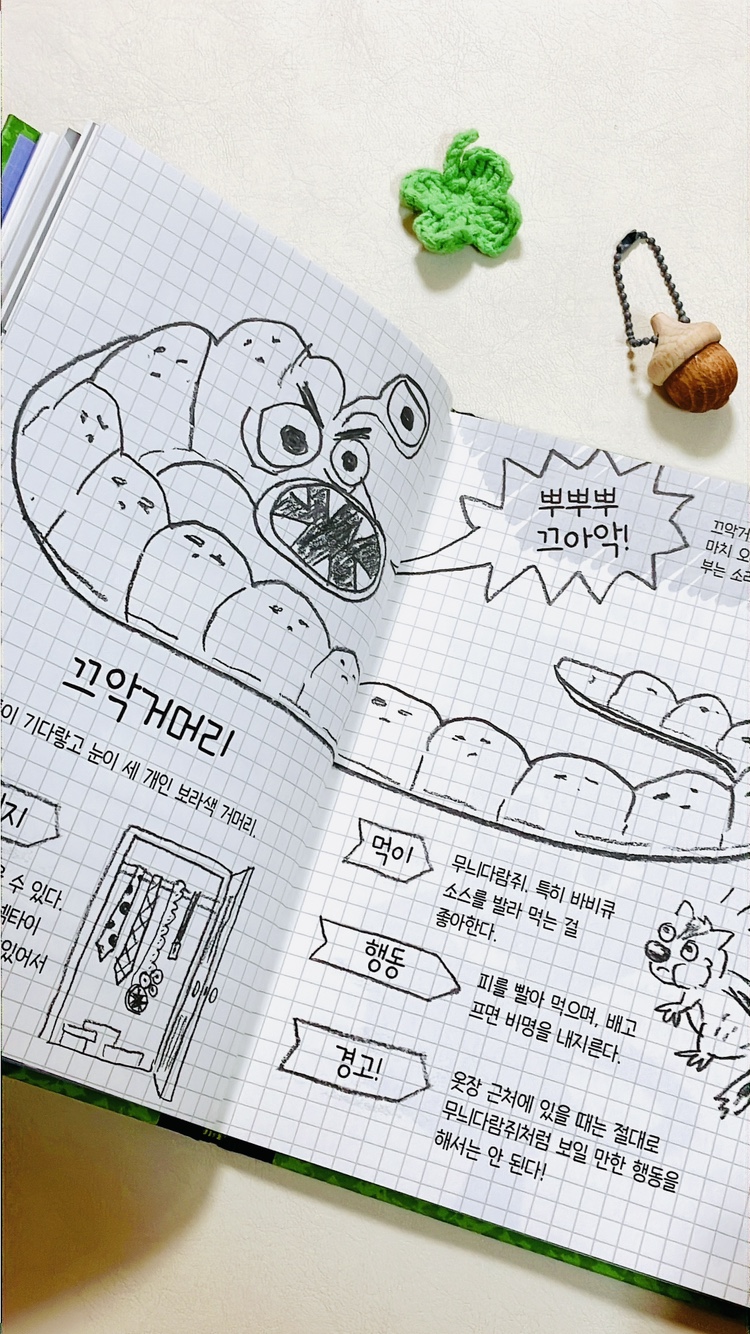 뿌뿌뿌
끄아악!
마치
부는
끄악거머리
기다랗고 눈이 세 개인 보라색 거머리.
수 있다.
넥타이
있어서
먹이
무늬다람쥐. 특히 바비큐
소스를 발라 먹는 걸
좋아한다.
행동
피를 빨아 먹으며, 배고
프면 비명을 내지른다.
경고!
옷장 근처에 있을 때는 절대로
무늬다람쥐처럼 보일 만한 행동을
해서는 안 된다!